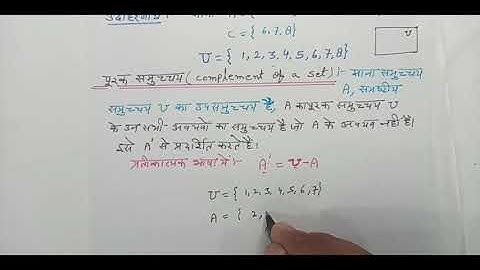 उदाहरणार्थ :-
C = { 6, 7, 8 }
U
U = { 1, 2, 3, 4, 5, 6, 7, 8 }
पूरक समुच्चय ( complement of a set ) :- माना समुच्चय
A, समष्टीय
समुच्चय U का उपसमुच्चय है, A का पूरक समुच्चय U
के उन सभी अवयवों का समुच्चय है जो A के अवयव नहीं है।
इसे A' से प्रदर्शित करते हैं।
प्रतीकात्मक भाषा में :- A' = U - A
U = { 1, 2, 3, 4, 5, 6, 7 }
A = { 2,